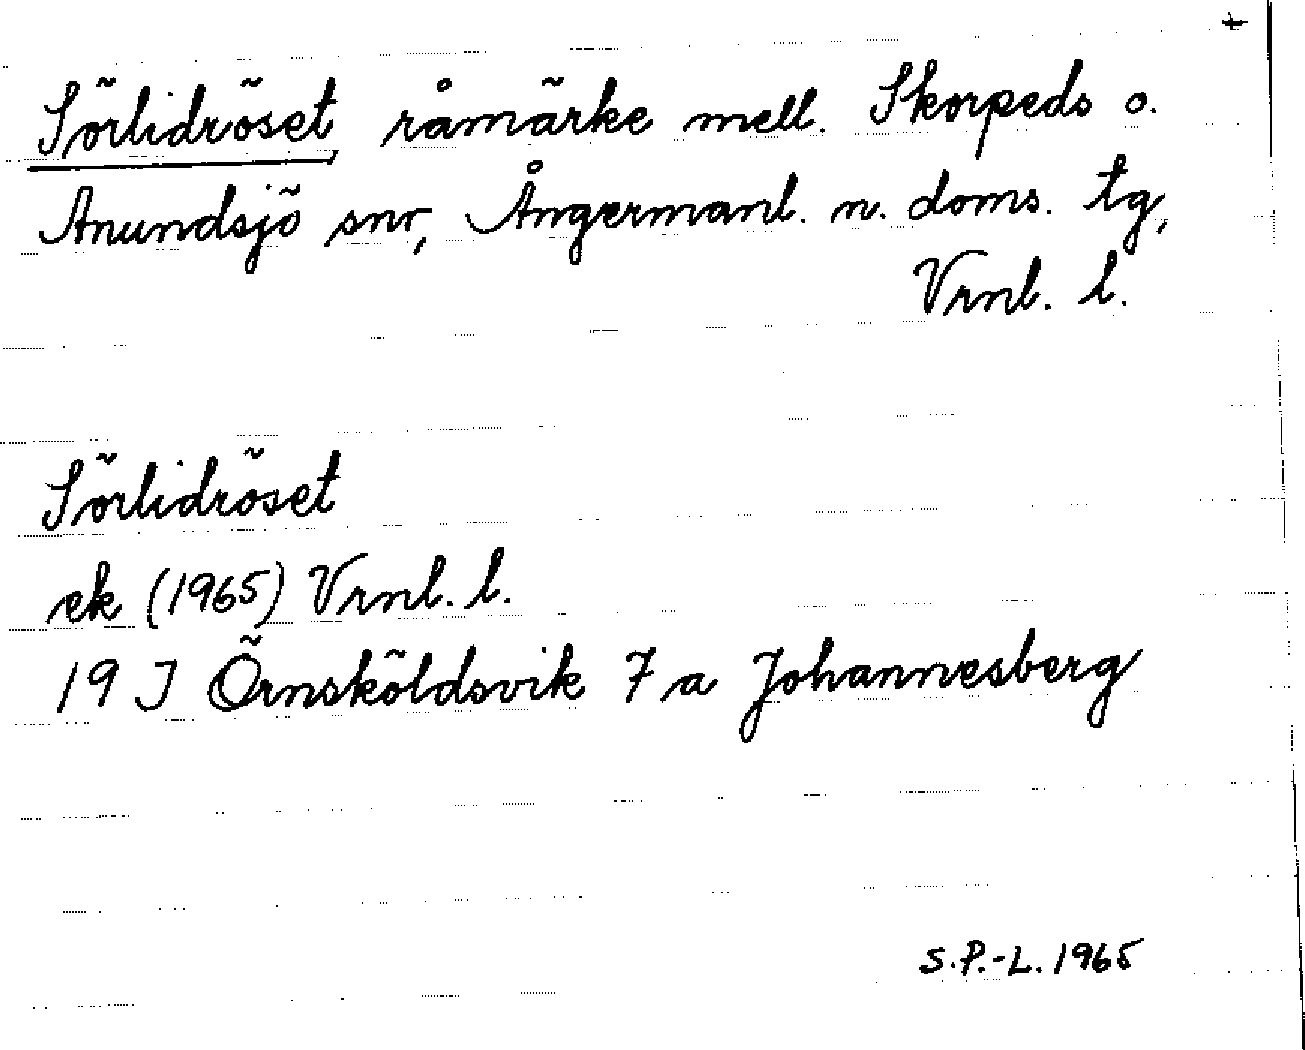 Sörlidröset råmärke mell. Skorpeds o.
Anundsjö snr, Ångermanl. n. doms. tg,
Vrnl. l.
Sörlidröset
ek (1965) Vrnl. l.
19 J Örnsköldsvik 7 a Johannesberg
S.P.-L. 1965